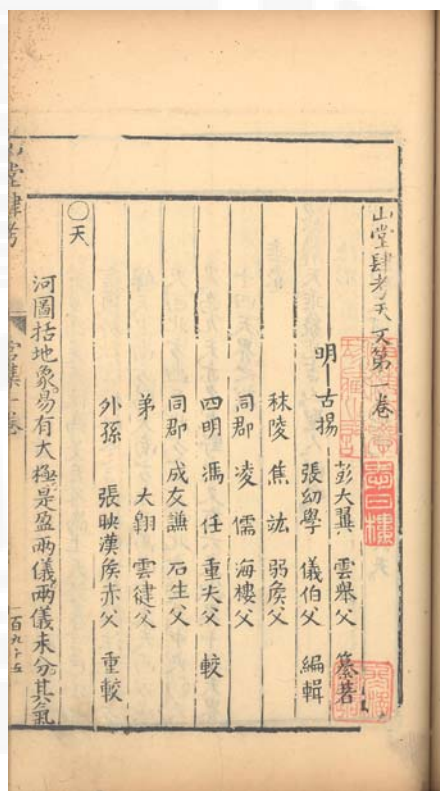 山堂肆考天文第一卷
明
古揚
彭大翼 雲舉父 纂著
張幼學 儀伯父 編輯
秣陵 焦竑 弱矦父
同郡 凌儒 海樓父
四明 馮任 重夫父 較
同郡 成友謙 石生父
弟 大翱 雲健父
外孫 張映漢矦赤父 重較
○天
河圖括地象易有大極是盈兩儀兩儀未分其氣
山堂肆考
宮集一卷